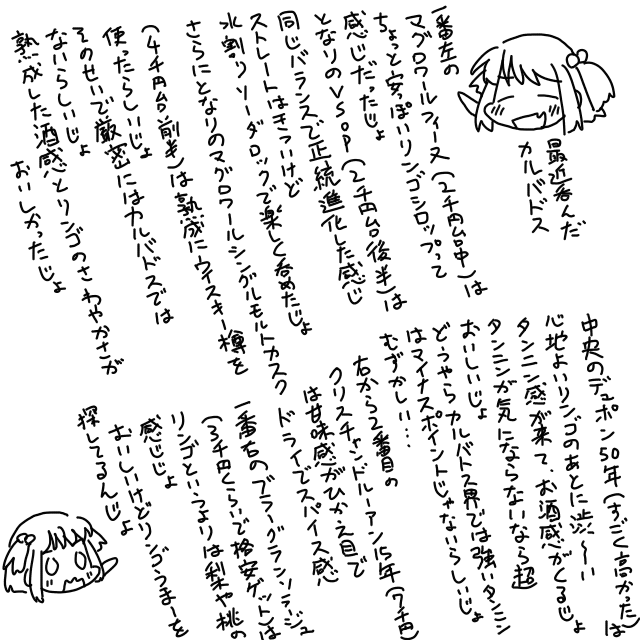 最近呑んだ
カルバドス
一番左の
マグロワールフィーヌ(2千円台中)は
ちょっと安っぽいリンゴシロップって
感じだったじょ
となりのVSOP(2千円台後半)は
同じバランスで正統進化した感じ
ストレートはきついけど
水割りソーダロックで楽しく呑めたじょ
さらにとなりのマグロワールシングルモルトカスク
(4千円台前半)は熟成にウイスキー樽を
使ったらしいじょ
そのせいで厳密にはカルバドスでは
ないらしいじょ
熟成した酒感とリンゴのさわやかさが
おいしかったじょ
中央のデュポン50年(すごく高かった)は
心地よいリンゴのあとに渋〜い
タンニン感が来て、お酒感がくるじょ
タンニンが気にならないなら超
おいしいじょ
どうやらカルバドス界では強いタンニン
はマイナスポイントじゃないらしいじょ
むずかしい…
右から2番目の
クリスチャンドルーアン15年(7千円)
は甘味感がひかえ目で
ドライでスパイス感
一番右のブラーグランソラージュ
(3千円くらいで格安ゲット)は
リンゴというよりは梨や桃の
感じじょ
おいしいけどリンゴうまーを
探してるんじょ